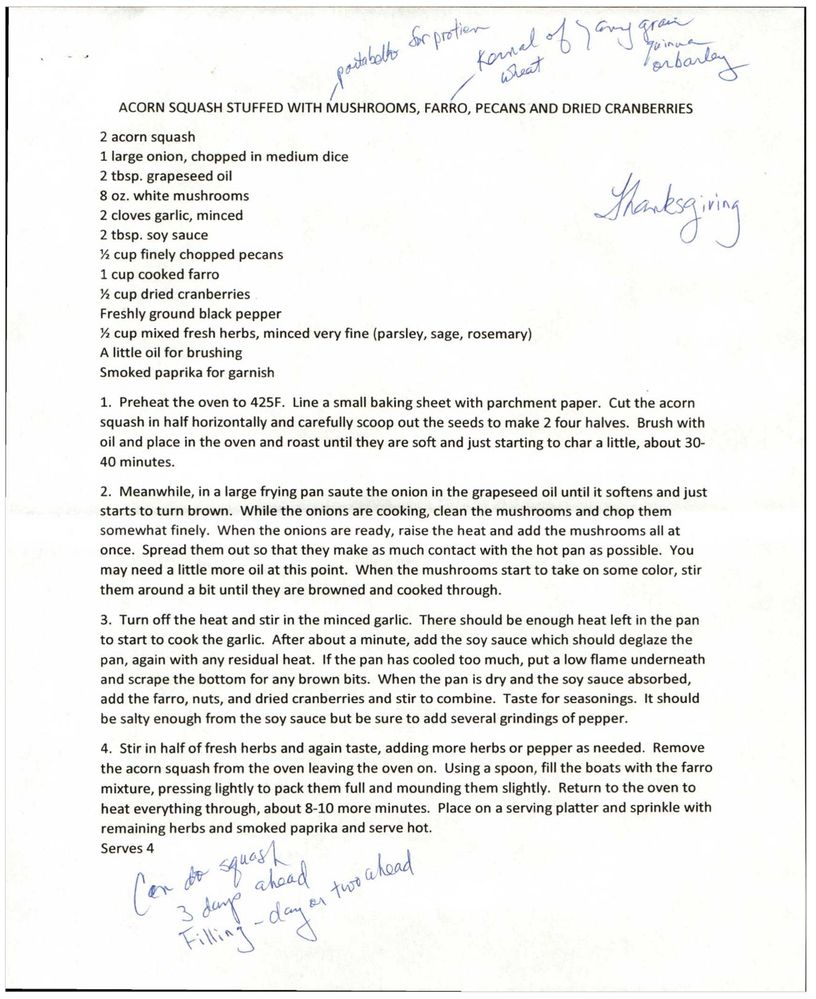 portabello for protien
Kernal of
wheat
any grain
quinua
or barley
ACORN SQUASH STUFFED WITH MUSHROOMS, FARRO, PECANS AND DRIED CRANBERRIES
2 acorn squash
1 large onion, chopped in medium dice
2 tbsp. grapeseed oil
8 oz. white mushrooms
2 cloves garlic, minced
2 tbsp. soy sauce
½ cup finely chopped pecans
1 cup cooked farro
½ cup dried cranberries
Freshly ground black pepper
½ cup mixed fresh herbs, minced very fine (parsley, sage, rosemary)
A little oil for brushing
Smoked paprika for garnish
Thanksgiving
1. Preheat the oven to 425F. Line a small baking sheet with parchment paper. Cut the acorn
squash in half horizontally and carefully scoop out the seeds to make 2 four halves. Brush with
oil and place in the oven and roast until they are soft and just starting to char a little, about 30-
40 minutes.
2. Meanwhile, in a large frying pan saute the onion in the grapeseed oil until it softens and just
starts to turn brown. While the onions are cooking, clean the mushrooms and chop them
somewhat finely. When the onions are ready, raise the heat and add the mushrooms all at
once. Spread them out so that they make as much contact with the hot pan as possible. You
may need a little more oil at this point. When the mushrooms start to take on some color, stir
them around a bit until they are browned and cooked through.
3. Turn off the heat and stir in the minced garlic. There should be enough heat left in the pan
to start to cook the garlic. After about a minute, add the soy sauce which should deglaze the
pan, again with any residual heat. If the pan has cooled too much, put a low flame underneath
and scrape the bottom for any brown bits. When the pan is dry and the soy sauce absorbed,
add the farro, nuts, and dried cranberries and stir to combine. Taste for seasonings. It should
be salty enough from the soy sauce but be sure to add several grindings of pepper.
4. Stir in half of fresh herbs and again taste, adding more herbs or pepper as needed. Remove
the acorn squash from the oven leaving the oven on. Using a spoon, fill the boats with the farro
mixture, pressing lightly to pack them full and mounding them slightly. Return to the oven to
heat everything through, about 8-10 more minutes. Place on a serving platter and sprinkle with
remaining herbs and smoked paprika and serve hot.
Serves 4
Can do squash
3 days ahead
Filling - day or two ahead